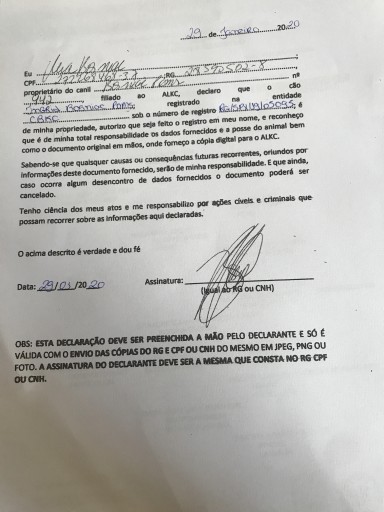 29 de Janeiro 2020
Eu
CPF RG
proprietário do canil nº
942 filiado ao ALKC, declaro que o cão
registrado na entidade
CBKC sob o número de registro é
de minha propriedade, autorizo que seja feito o registro em meu nome, e reconheço
que é de minha total responsabilidade os dados fornecidos e a posse do animal bem
como o documento original em mãos, onde forneço a cópia digital para o ALKC.
Sabendo-se que quaisquer causas ou consequências futuras recorrentes, oriundos por
informações deste documento fornecido, serão de minha responsabilidade. E que ainda,
caso ocorra algum desencontro de dados fornecidos o documento poderá ser
cancelado.
Tenho ciência dos meus atos e me responsabilizo por ações cíveis e criminais que
possam recorrer sobre as informações aqui declaradas.
O acima descrito é verdade e dou fé
Data: 29/01/2020 Assinatura:
(Igual ao RG ou CNH)
OBS: ESTA DECLARAÇÃO DEVE SER PREENCHIDA A MÃO PELO DECLARANTE E SÓ É
VÁLIDA COM O ENVIO DAS CÓPIAS DO RG E CPF OU CNH DO MESMO EM JPEG, PNG OU
FOTO. A ASSINATURA DO DECLARANTE DEVE SER A MESMA QUE CONSTA NO RG CPF
OU CNH.